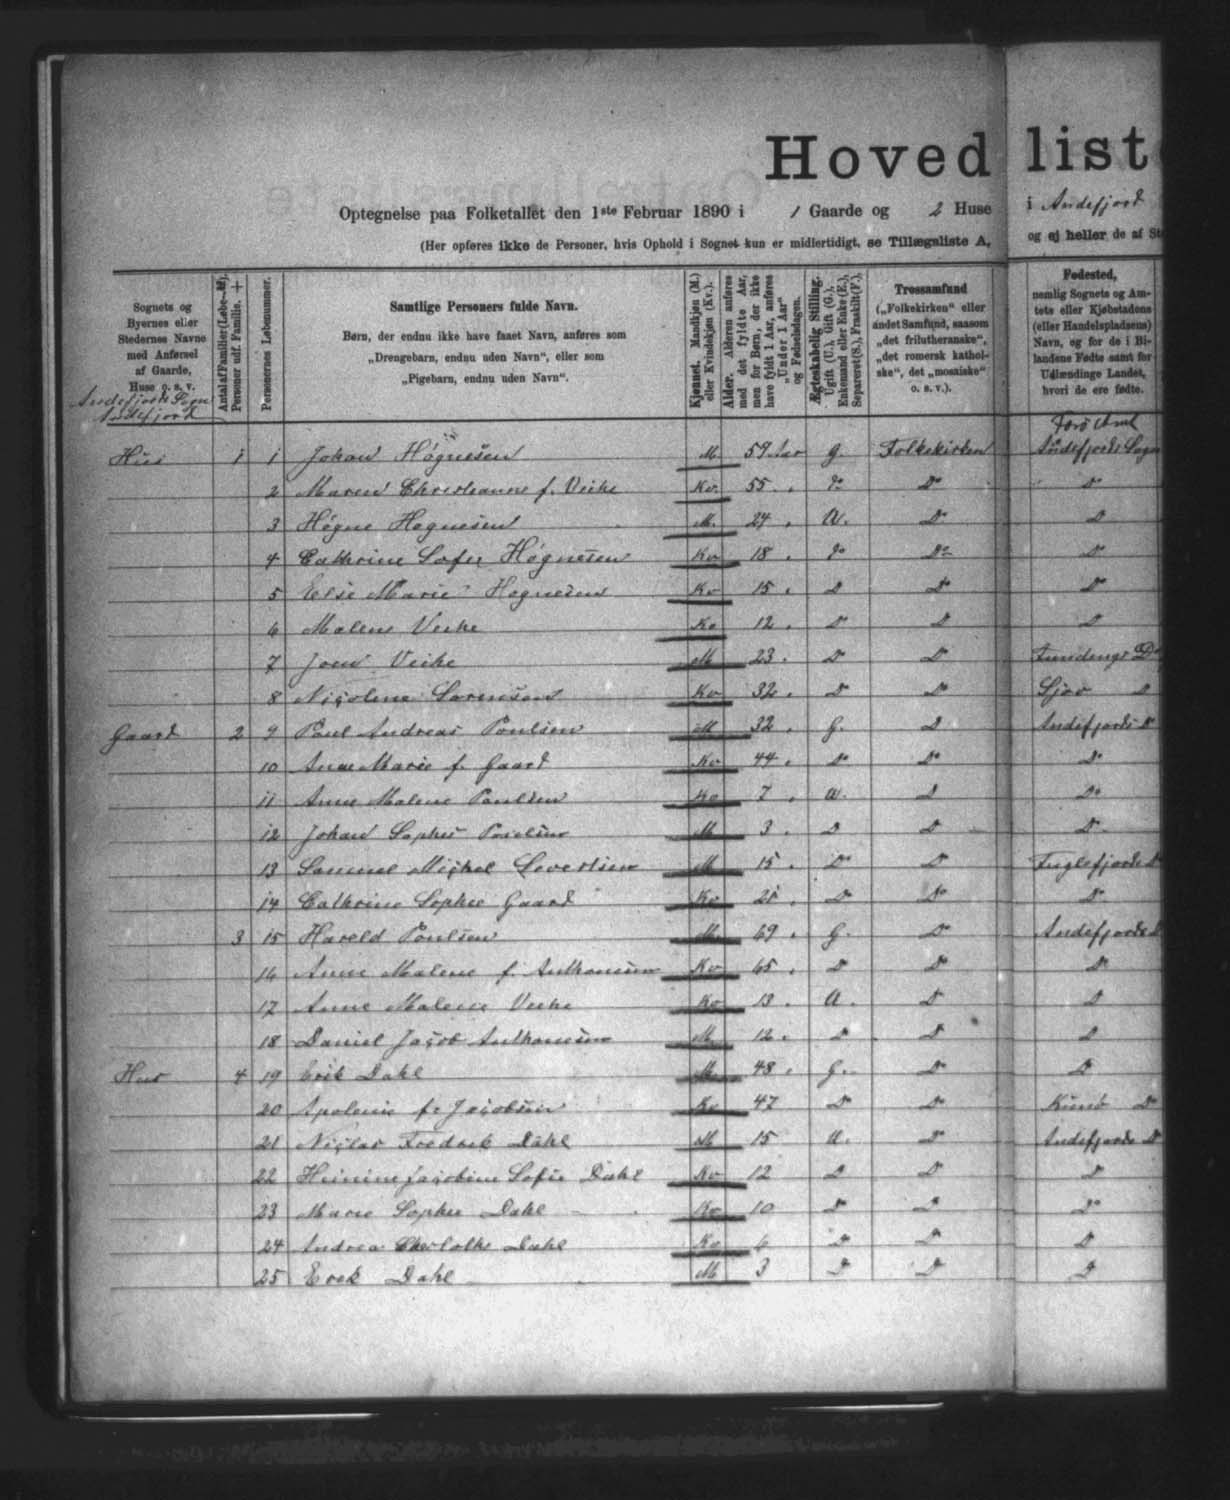 Hovedliste
Optegnelse paa Folketallet den 1ste Februar 1890 i 1 Gaarde og 2 Huse i Andefjord
(Her opføres ikke de Personer, hvis Ophold i Sognet kun er midlertidigt, se Tillægsliste A, og ej heller de af
Sognets og Byernes eller Stedernes Navne med Anførsel af Gaarde, Huse o. s. v.
Andefjords Sogn
Andefjord
Antal af Familier (Løbe-№). Personer udf. Familie. +
Personernes Løbenummer.
Samtlige Personers fulde Navn.
Børn, der endnu ikke have faaet Navn, anføres som
„Drengebarn, endnu uden Navn“, eller som
„Pigebarn, endnu uden Navn“.
Kjønnet. Mandkjøn (M.) eller Kvindekjøn (Kv.).
Alder. Alderen anføres med det fyldte Aar, men for Børn, der ikke have fyldt 1 Aar, anføres „Under 1 Aar“ og Fødselsdagen.
Ægteskabelig Stilling. Ugift (U.), Gift (G.), Enkemand eller Enke (E.), Separeret (S.), Fraskilt (F.).
Trossamfund
(„Folkekirken“ eller andet Samfund, saasom „det frilutheranske“, „det romersk katholske“, det „mosaiske“ o. s. v.).
Fødested,
nemlig Sognets og Amtets eller Kjøbstadens (eller Handelspladsens) Navn, og for de i Bilandene Fødte samt for Udlændinge Landet, hvori de ere fødte.
Færø Amt
Hus 1 1 Johan Høgnesen M. 59 Aar G. Folkekirken Andefjords Sogn
2 Maren Christianne f. Veihe Kv. 55 " Do Do Do
3 Høgne Høgnesen M. 24 " U. Do D
4 Cathrine Sofie Høgnesen Kv 18 " Do Do Do
5 Else Marie Høgnesen Kv 15 " D Do Do
6 Malene Veihe Kv 12 " Do D D
7 Joen Veihe M 23 " Do Do Fundings Do
8 Nicoline Sørensen Kv 32 " D Do Sjov D
Gaard 2 9 Poul Andreas Poulsen M 32 " G. D Andefjords D
10 Anne Marie f. Gaard Kv 44 " Do Do Do
11 Anne Malene Poulsen Kv 7 " U. D Do
12 Johan Sophus Poulsen M 3 " D D D
13 Samuel Michel Sivertsen M 15 " Do Do Fuglefjords D
14 Cathrine Sophie Gaard Kv " Do Do Do
3 15 Harald Poulsen M. 69 " G. Do Andefjords D
16 Anne Malene f. Anthonisen Kv 65 " D Do Do
17 Anne Malene Veihe Kv 13 " U. D D
18 Daniel Jacob Anthonisen M. 12 " D D D
Hus 4 19 Erik Dahl M. 48 " G. Do D
20 Apolonie f. Jacobsen Kv 47 Do Do Kunø Do
21 Niclas Fredrik Dahl M 15 U. D Andefjords D
22 Jacobine Sofie Dahl Kv 12 D D D
23 Marie Sophie Dahl Kv 10 D D Do
24 Andrea Charlotte Dahl Kv 6 D D D
25 Erik Dahl M 3 D D D